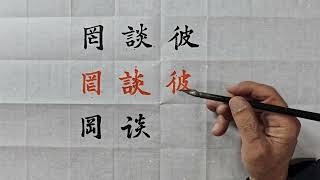 罔談彼
罔談彼
罔谈